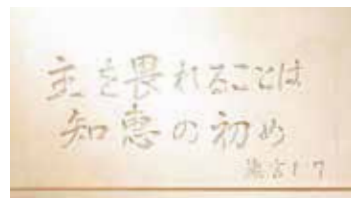 主を畏れることは
知恵の初め
箴言1・7